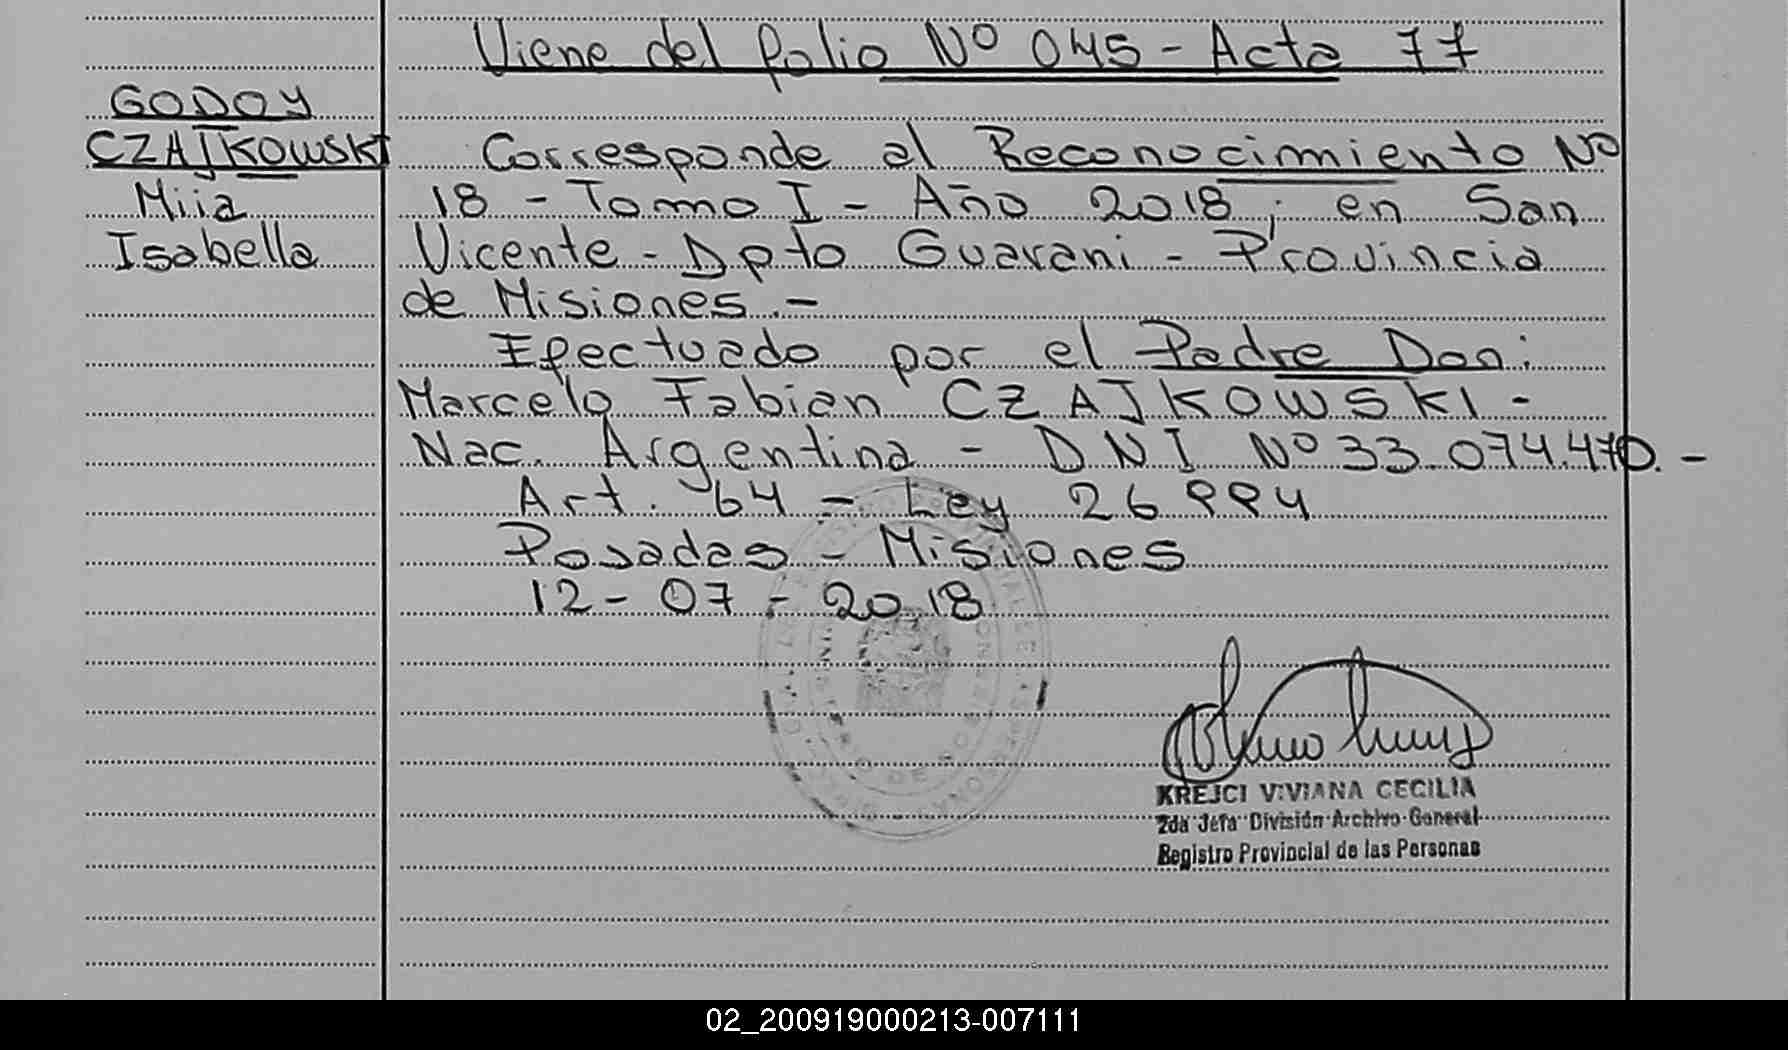 Viene del folio Nº 045 - Acta 77
GODOY
CZAJKOWSKI
Miia
Isabella
Corresponde al Reconocimiento Nº
18 - Tomo I - Año 2018; en San
Vicente - Dpto Guarani - Provincia
de Misiones.-
Efectuado por el Padre Don:
Marcelo Fabian CZAJKOWSKI -
Nac. Argentina - DNI Nº 33.074.470.-
Art. 64 - Ley 26994
Posadas - Misiones
12-07-2018
KREJCI VIVIANA CECILIA
2da Jefa División Archivo General
Registro Provincial de las Personas
02_200919000213-007111